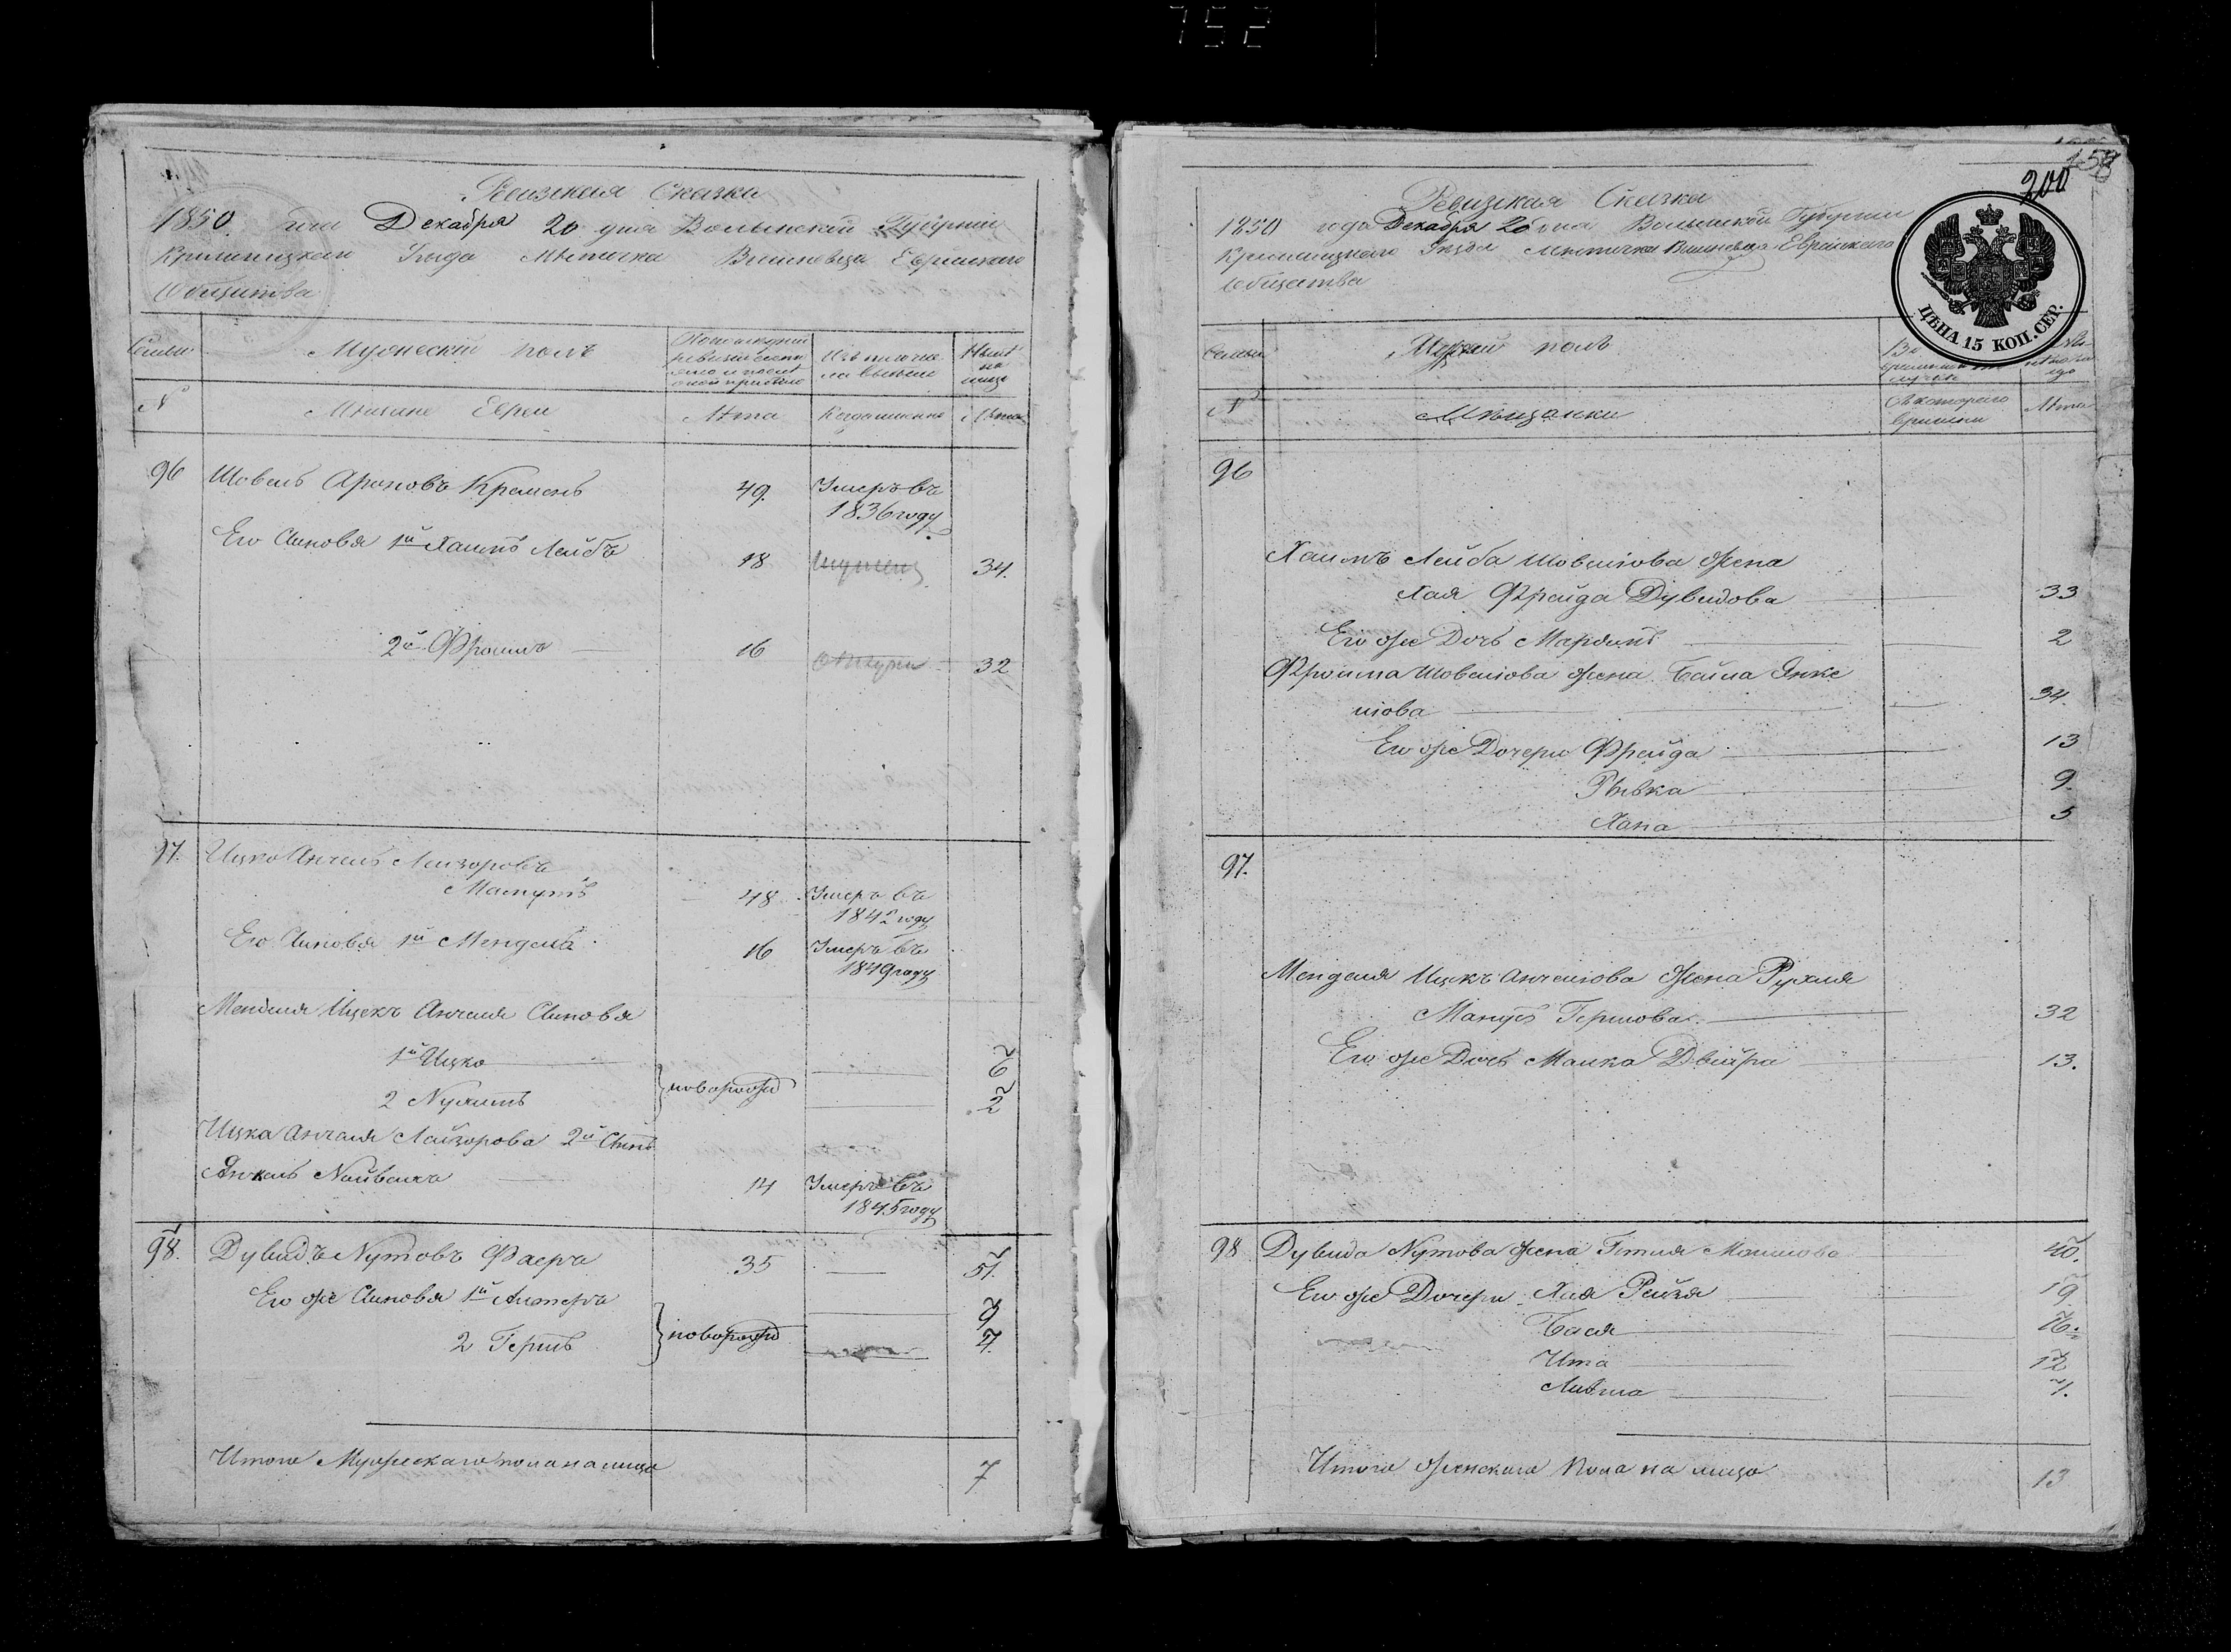 752
Ревизкая Сказка
1850. года Декабря 20 дня Волынской Губерніи
Кременецкаго Уезда Местечка Вишневца Еврейскаго
Общества
Семьи
Мужескій полъ
По последней
ревизіи
Изъ того числа
выбыло
Ныне
на
лицо
№
Мещане Евреи
Лета
Когда именно
Лета
96
Шовель Ароновъ Кремень
49.
Умеръ въ
1836 году
Его Сыновья 1й Хаимъ Лейбъ
18
34.
2й Фроимъ
16
32
97.
Ицко Анчель Лейзоровъ
48
Умеръ въ
1842 году
Его Сыновья 1й Мендель
16
Умеръ въ
1849 году
Менделя Ицекъ Анчеля Сыновья
1й Ицко
6
2 Нухимъ
новорожд
2
Ицка Анчеля Лейзорова 2й Сынъ
Янкель
14
Умеръ въ
1845 году
98.
Дувидъ Нутовъ Фаеръ
35
51.
Его же Сыновья 1й Алтеръ
9
2 Герш
новорожд
7.
Итого Мужескаго пола на лицо
7
158
200
ЦѢНА 15 КОП. СЕР.
Ревизкая Сказка
1850 года Декабря 20 дня Волынской Губерніи
Кременецкаго Уезда Местечка Вишневца Еврейскаго
Общества
Семьи
полъ
№
Мещанки
Съ котораго
времени
Лета
96
Хаимъ Лейба Шовелова жена
Хая Фрейда Дувидова
33
Его же Дочь
2
Фроима Шовелова жена Бейла Янке
лова
34.
Его же Дочери Фрейда
13
Рывка
9.
Хана
5
97.
Менделя Ицкъ Анчелова жена Рухля
Гершова
32
Его же Дочь Малка Двейра
13.
98
Дувида Нутова жена
40.
Его же Дочери Хая Рейзя
19
Бася
16.
Ита
12
7.
Итого женскаго пола на лицо
13